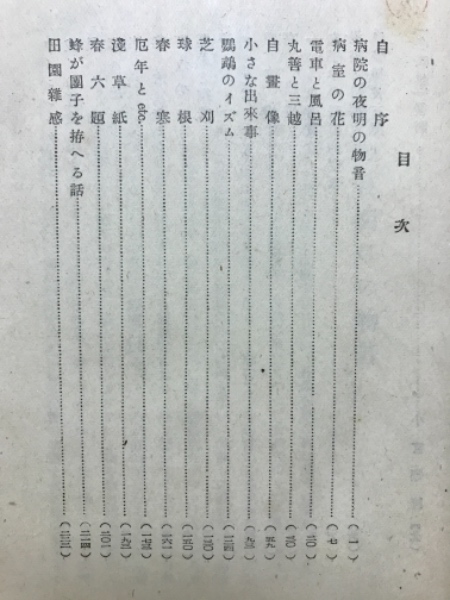 目次
自序
病院の夜明の物音……(一)
病室の花……(七)
電車と風呂
丸善と三越
自畫像
小さな出來事
鸚鵡のイズム
芝刈
球根
春寒
厄年と etc.
淺草紙
春六題
蜂が團子を拵へる話
田園雜感